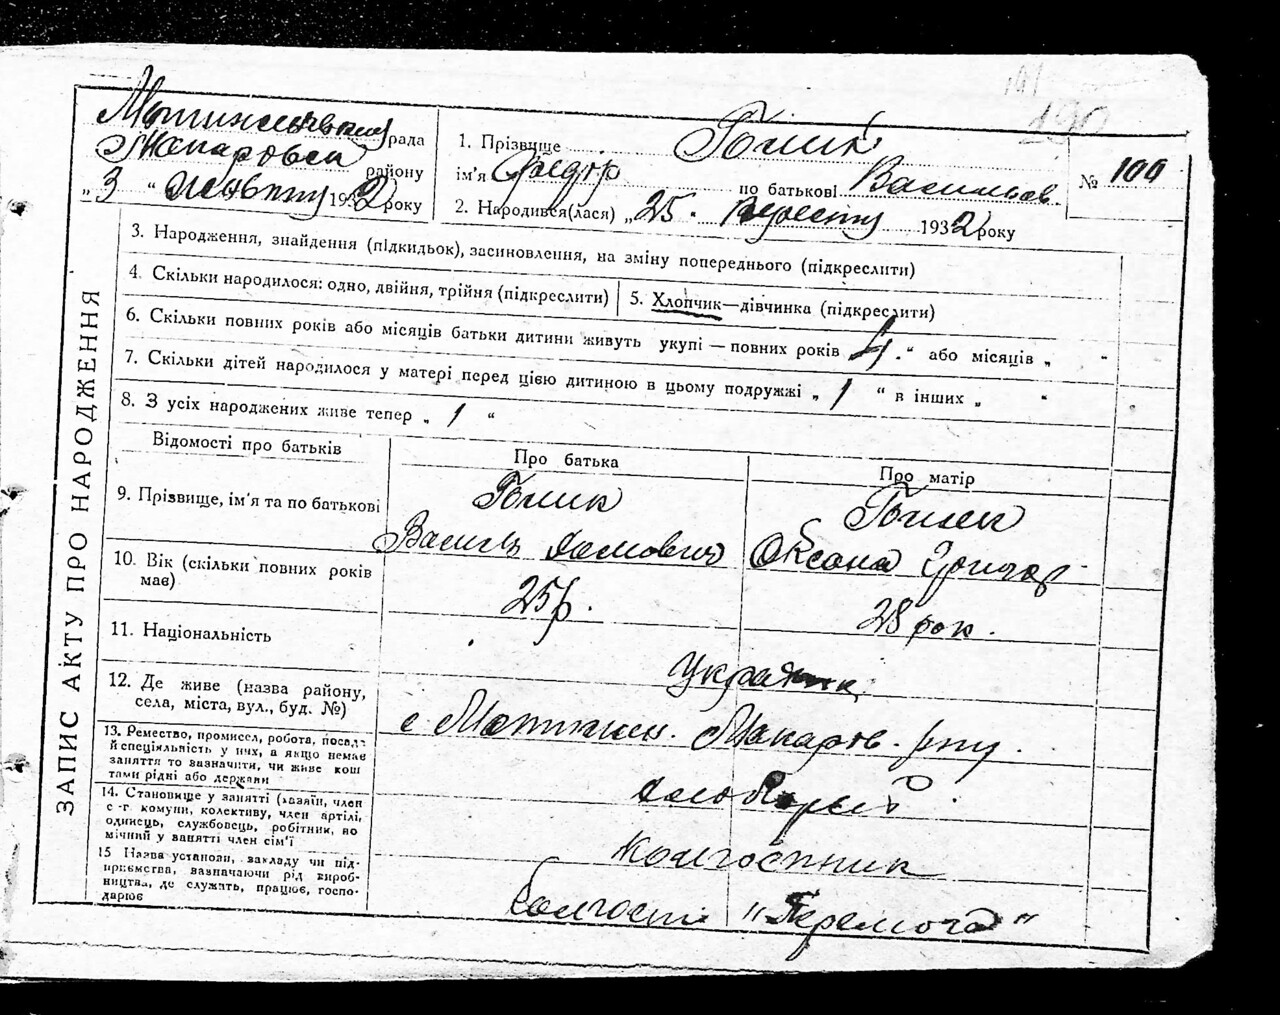 190
Мотижинська рада
Макаровськ району
„ 3 “ жовтня 1932 року
1. Прізвище
ім'я Федір по батькові Васильов.
2. Народився(лася) „ 25 “ вересня 1932 року
№ 100
ЗАПИС АКТУ ПРО НАРОДЖЕННЯ
3. Народження, знайдення (підкидьок), засиновлення, на зміну попереднього (підкреслити)
4. Скільки народилося: одно, двійня, трійня (підкреслити)
5. Хлопчик—дівчинка (підкреслити)
6. Скільки повних років або місяців батьки дитини живуть укупі — повних років 4 “ або місяців „ “
7. Скільки дітей народилося у матері перед цією дитиною в цьому подружжі „ 1 “ в інших „ “
8. З усіх народжених живе тепер „ 1 “
Відомості про батьків
Про батька
Про матір
9. Прізвище, ім'я та по батькові
Василь
Оксана Григор
10. Вік (скільки повних років
має)
25 р.
28 рок.
11. Національність
12. Де живе (назва району,
села, міста, вул., буд. №)
с Мотижин. Макаров. р-ну.
13. Ремество, промисел, робота, посада
й спеціяльність у них, а якщо немає
заняття то зазначити, чи живе кош
тами рідні або держави
хлібороб
14. Становище у занятті (хазяїн, член
с-г комуни, колективу, член артілі,
одинець, службовець, робітник, по
мічний у занятті член сім'ї
Колгоспник
15 Назва установи, закладу чи під-
приємства, зазначаючи рід вироб-
ництва, де служить, працює, госпо-
дарює
Колгосп „Перемога“